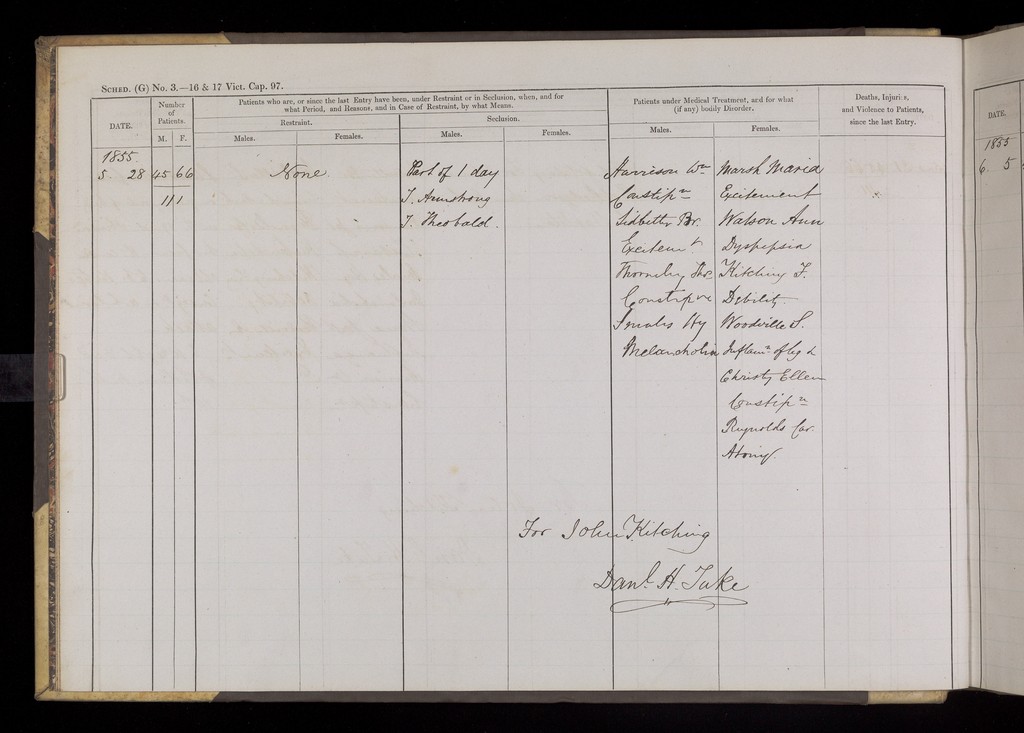 SCHED. (G) No. 3.—16 & 17 Vict. Cap. 97.
DATE.
Number of Patients.
M. F.
Patients who are, or since the last Entry have been, under Restraint or in Seclusion, when, and for
what Period, and Reasons, and in Case of Restraint, by what Means.
Restraint.
Males. Females.
Seclusion.
Males. Females.
Patients under Medical Treatment, and for what
(if any) bodily Disorder.
Males. Females.
Deaths, Injuries,
and Violence to Patients,
since the last Entry.
1855.
5 28 45 66 None. Part of 1 day Harrison Wm Marsh Maria
111 J. Armstrong Constipn Excitement
J. Theobald. Br. Watson Ann
Excitemt Dyspepsia
Thos Kitching F.
Constipn Debility.
Smales Hy Woodville S.
Melancholia Inflamn of leg &
Christy Ellen
Constipn
Reynolds Car.
Atony.
For John Kitching
Danl. H. Tuke
DATE.
1855
6. 5